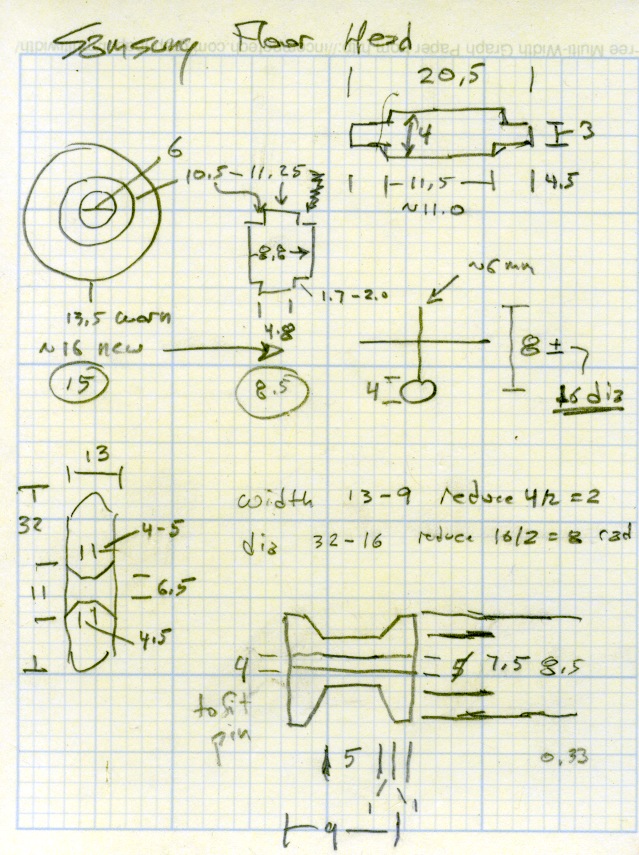 Samsung Floor Head
20,5
6
10.5-11.25
4
3
11,5
4.5
~11.0
8,8
1.7-2.0
13,5 worn
4.8
~6 mm
~16 new
8 ±
15
8.5
4
16 dia
13
width 13-9 reduce 4/2 = 2
32
4-5
dia 32-16 reduce 16/2 = 8 rad
11
6.5
4.5
4
5 7.5 8.5
to fit
pin
5
0.33
1 1
9